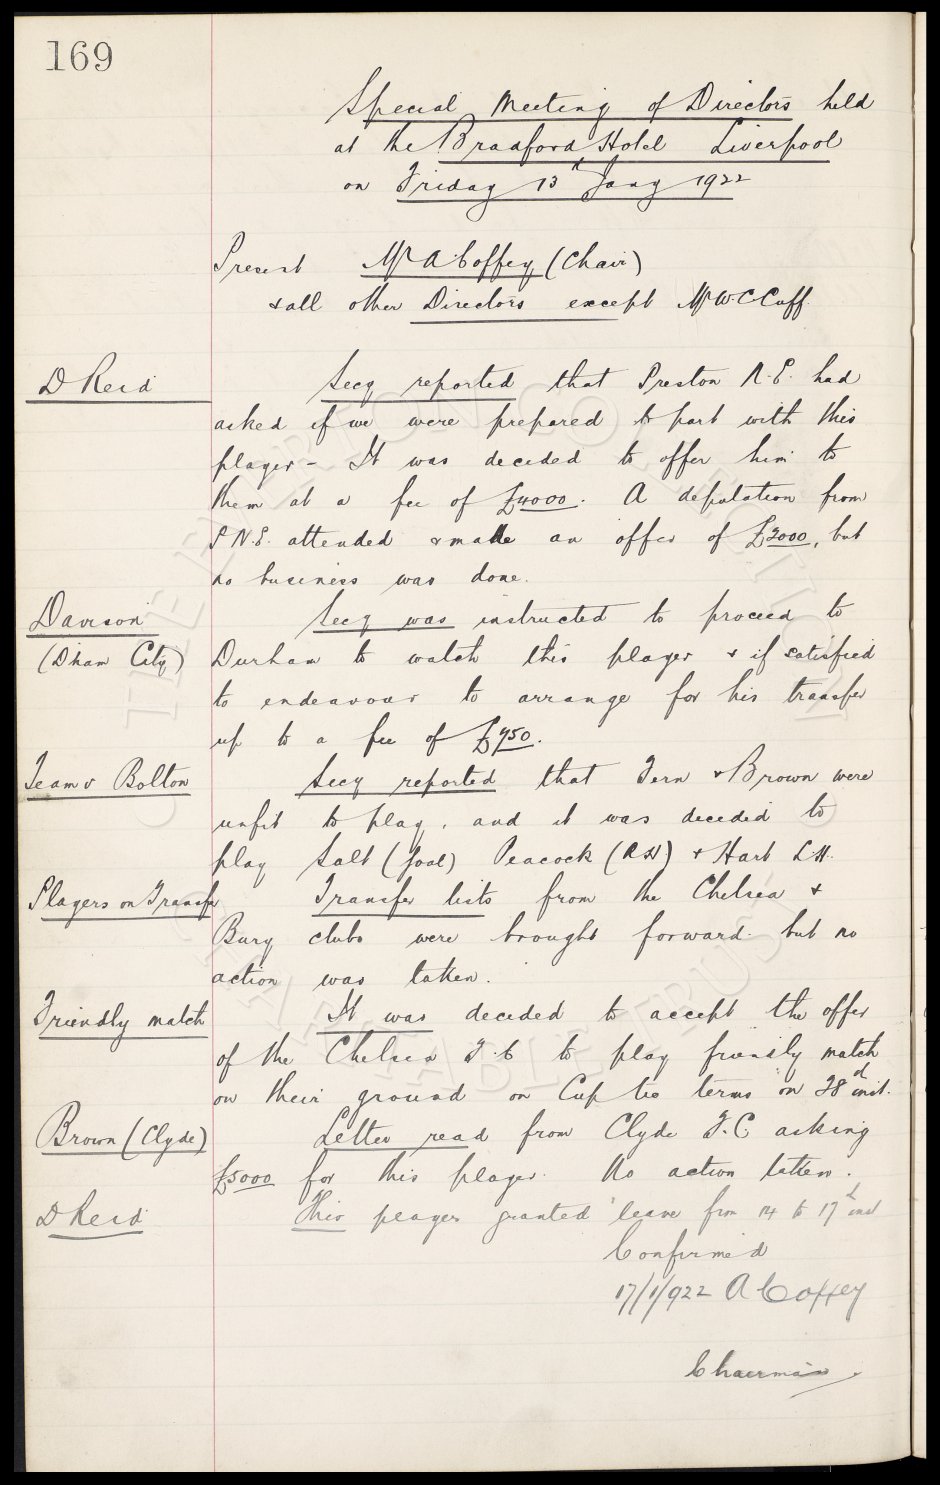 169
Special Meeting of Directors held
at the Bradford Hotel Liverpool
on Friday 13th Jany 1922
Present Mr A Coffey (Chair)
& all other Directors except Mr W C Cuff
D Reid Secy reported that Preston N.E. had
asked if we were prepared to part with this
player - It was decided to offer him to
them at a fee of £4000. A deputation from
P.N.E. attended & made an offer of £3000, but
no business was done.
Davison Secy was instructed to proceed to
(D'ham City) Durham to watch this player & if satisfied
to endeavour to arrange for his transfer
up to a fee of £750.
Team v Bolton Secy reported that Fern & Brown were
unfit to play, and it was decided to
play Salt (Goal) Peacock (RH) & Hart LH.
Players on Transfer Transfer lists from the Chelsea &
Bury clubs were brought forward but no
action was taken.
Friendly match It was decided to accept the offer
of the Chelsea F.C to play friendly match
on their ground on Cup tie terms on 28th inst.
Brown (Clyde) Letter read from Clyde F.C. asking
£5000 for this player. No action taken.
D Reid This player granted leave from 14 to 17th inst
Confirmed
17/1/922 A Coffey
Chairman
THE EVERTON COLLECTION
CHARITABLE TRUST